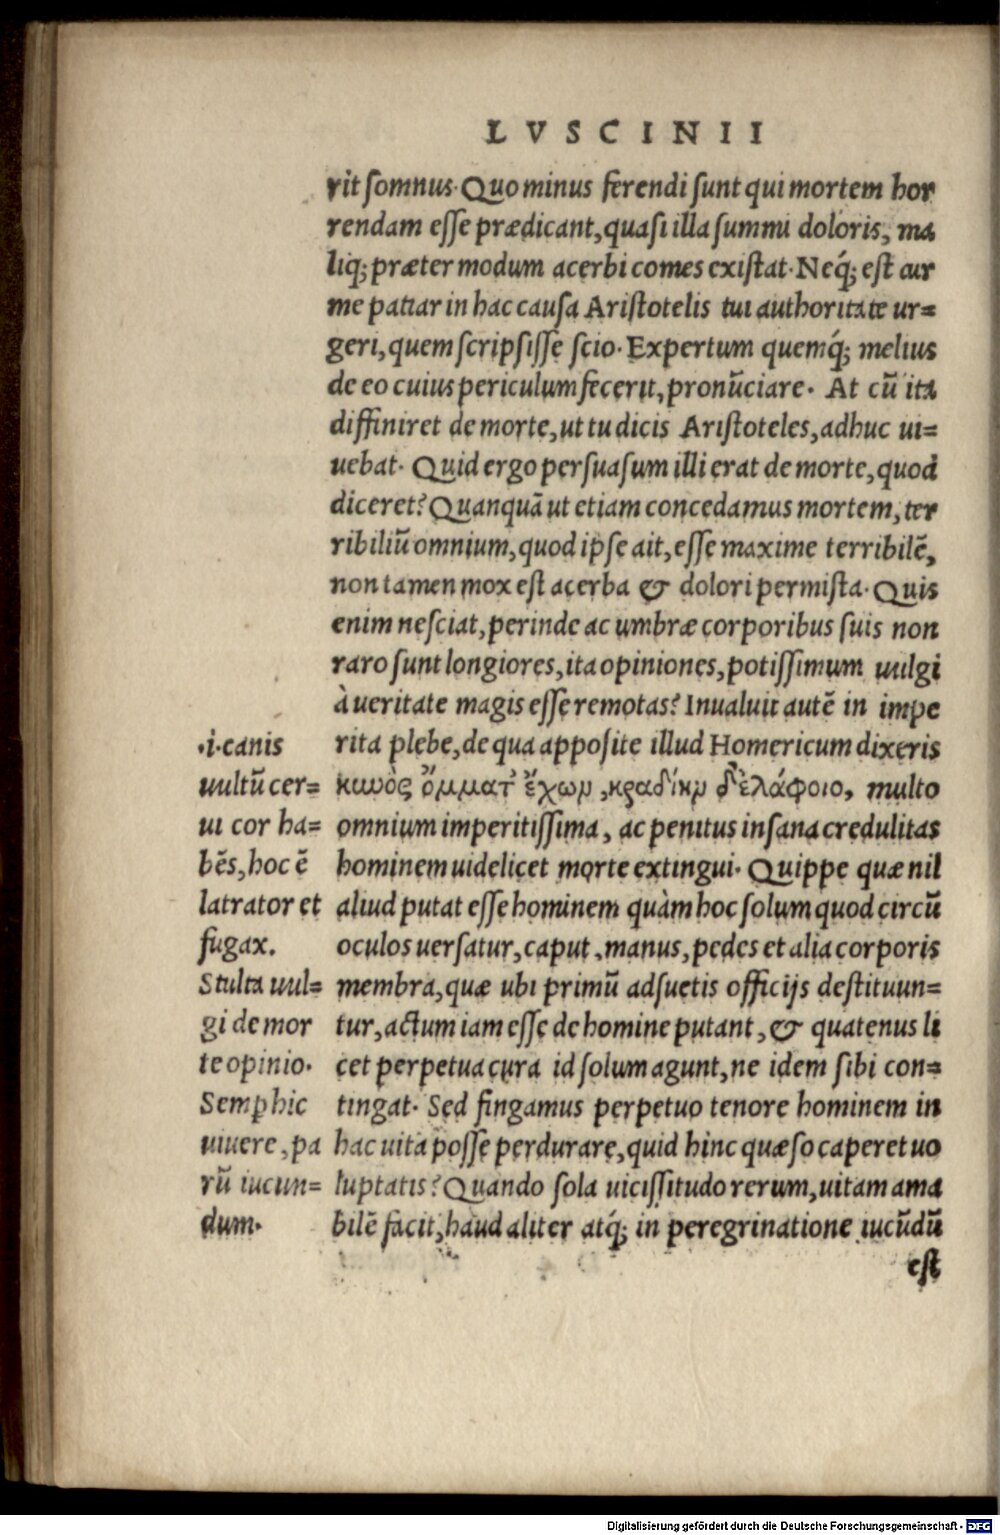 LVSCINII
rit somnus. Quo minus ferendi sunt qui mortem hor
rendam esse prædicant, quasi illa summi doloris, ma
liq; præter modum acerbi comes existat. Neq́; est cur
me patiar in hac causa Aristotelis tui authoritate ur=
geri, quem scripsisse scio. Expertum quemq́; melius
de eo cuius periculum fecerit, pronūciare. At cū ita
diffiniret de morte, ut tu dicis Aristoteles, adhuc ui=
uebat. Quid ergo persuasum illi erat de morte, quod
diceret? Quanquā ut etiam concedamus mortem, ter
ribiliū omnium, quod ipse ait, esse maxime terribilē,
non tamen mox est acerba & dolori permista. Quis
enim nesciat, perinde ac umbræ corporibus suis non
raro sunt longiores, ita opiniones, potissimum uulgi
à ueritate magis esse remotas? Inualuit autē in impe
rita plebe, de qua apposite illud Homericum dixeris
κυνὸς ὄμματ' ἔχων, κραδίην δ' ἐλάφοιο, multo
omnium imperitissima, ac penitus insana credulitas
hominem uidelicet morte extingui. Quippe quæ nil
aliud putat esse hominem quàm hoc solum quod circū
oculos uersatur, caput, manus, pedes et alia corporis
membra, quæ ubi primū adsuetis officijs destituun=
tur, actum iam esse de homine putant, & quatenus li
cet perpetua cura id solum agunt, ne idem sibi con=
tingat. Sed fingamus perpetuo tenore hominem in
hac uita posse perdurare, quid hinc quæso caperet uo
luptatis? Quando sola uicissitudo rerum, uitam ama
bilē facit, haud aliter atq́; in peregrinatione iucūdū
est
.i. canis
uultū cer=
ui cor ha=
bēs, hoc ē
latrator et
fugax.
Stulta uul=
gi de mor
te opinio.
Semp hic
uiuere, pa
rū iucun=
dum.
Digitalisierung gefördert durch die Deutsche Forschungsgemeinschaft - DFG